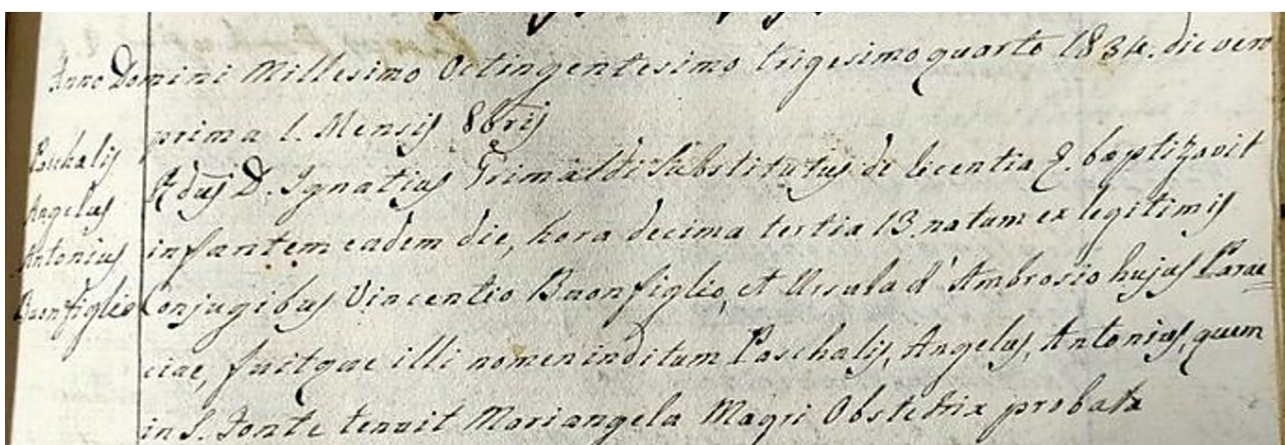 Anno Domini Millesimo Octingentesimo trigesimo quarto 1834. die vero
prima 1. Mensis 8bris
Paschalis
Angelus
Antonius
Buonfiglio
Rdus D. Ignatius Grimaldi Substitutus de licentia P. baptizavit
infantem eadem die, hora decima tertia 13. natum ex legitimis
Conjugibus Vincentio Buonfiglio, et Ursula d'Ambrosio hujus Paroe=
ciae, fuitque illi nomen inditum Paschalis, Angelus, Antonius, quem
in S. Fonte tenuit Mariangela Magri Obstetrix probata